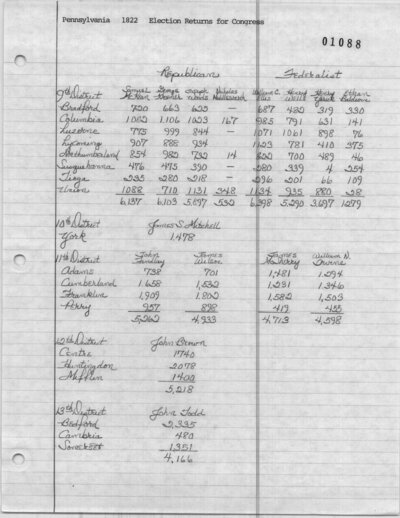 Pennsylvania 1822 Election Returns for Congress
01088
Republicans Federalist
9th District Samuel McKean George Kremer Joseph Woods William C. Ellis Henry Wells Ethan Baldwin
Bradford 720 663 623 — 687 482 319 330
Columbia 1082 1106 1023 167 985 791 631 141
Luzerne 775 999 844 — 1071 1061 898 96
Lycoming 907 888 934 1123 781 410 375
Northumberland 854 982 732 14 822 700 489 46
Susquehanna 476 475 390 — 280 339 4 254
Tioga 235 280 218 — 296 201 66 109
Union 1088 710 1131 348 1134 935 880 28
6,137 6,103 5,897 532 6,398 5,290 3,697 1279
10th District James S. Mitchell
York 1,478
11th District John Findlay James Wilson James McSherry William N. Irvine
Adams 738 701 1,481 1,294
Cumberland 1,658 1,532 1,231 1,346
Franklin 1,909 1,802 1,582 1,503
Perry 957 898 419 455
5,262 4,933 4,713 4,598
12th District John Brown
Centre 1740
Huntingdon 2078
Mifflin 1400
5,218
13th District John Todd
Bedford 2,335
Cambria 480
Somerset 1,351
4,166